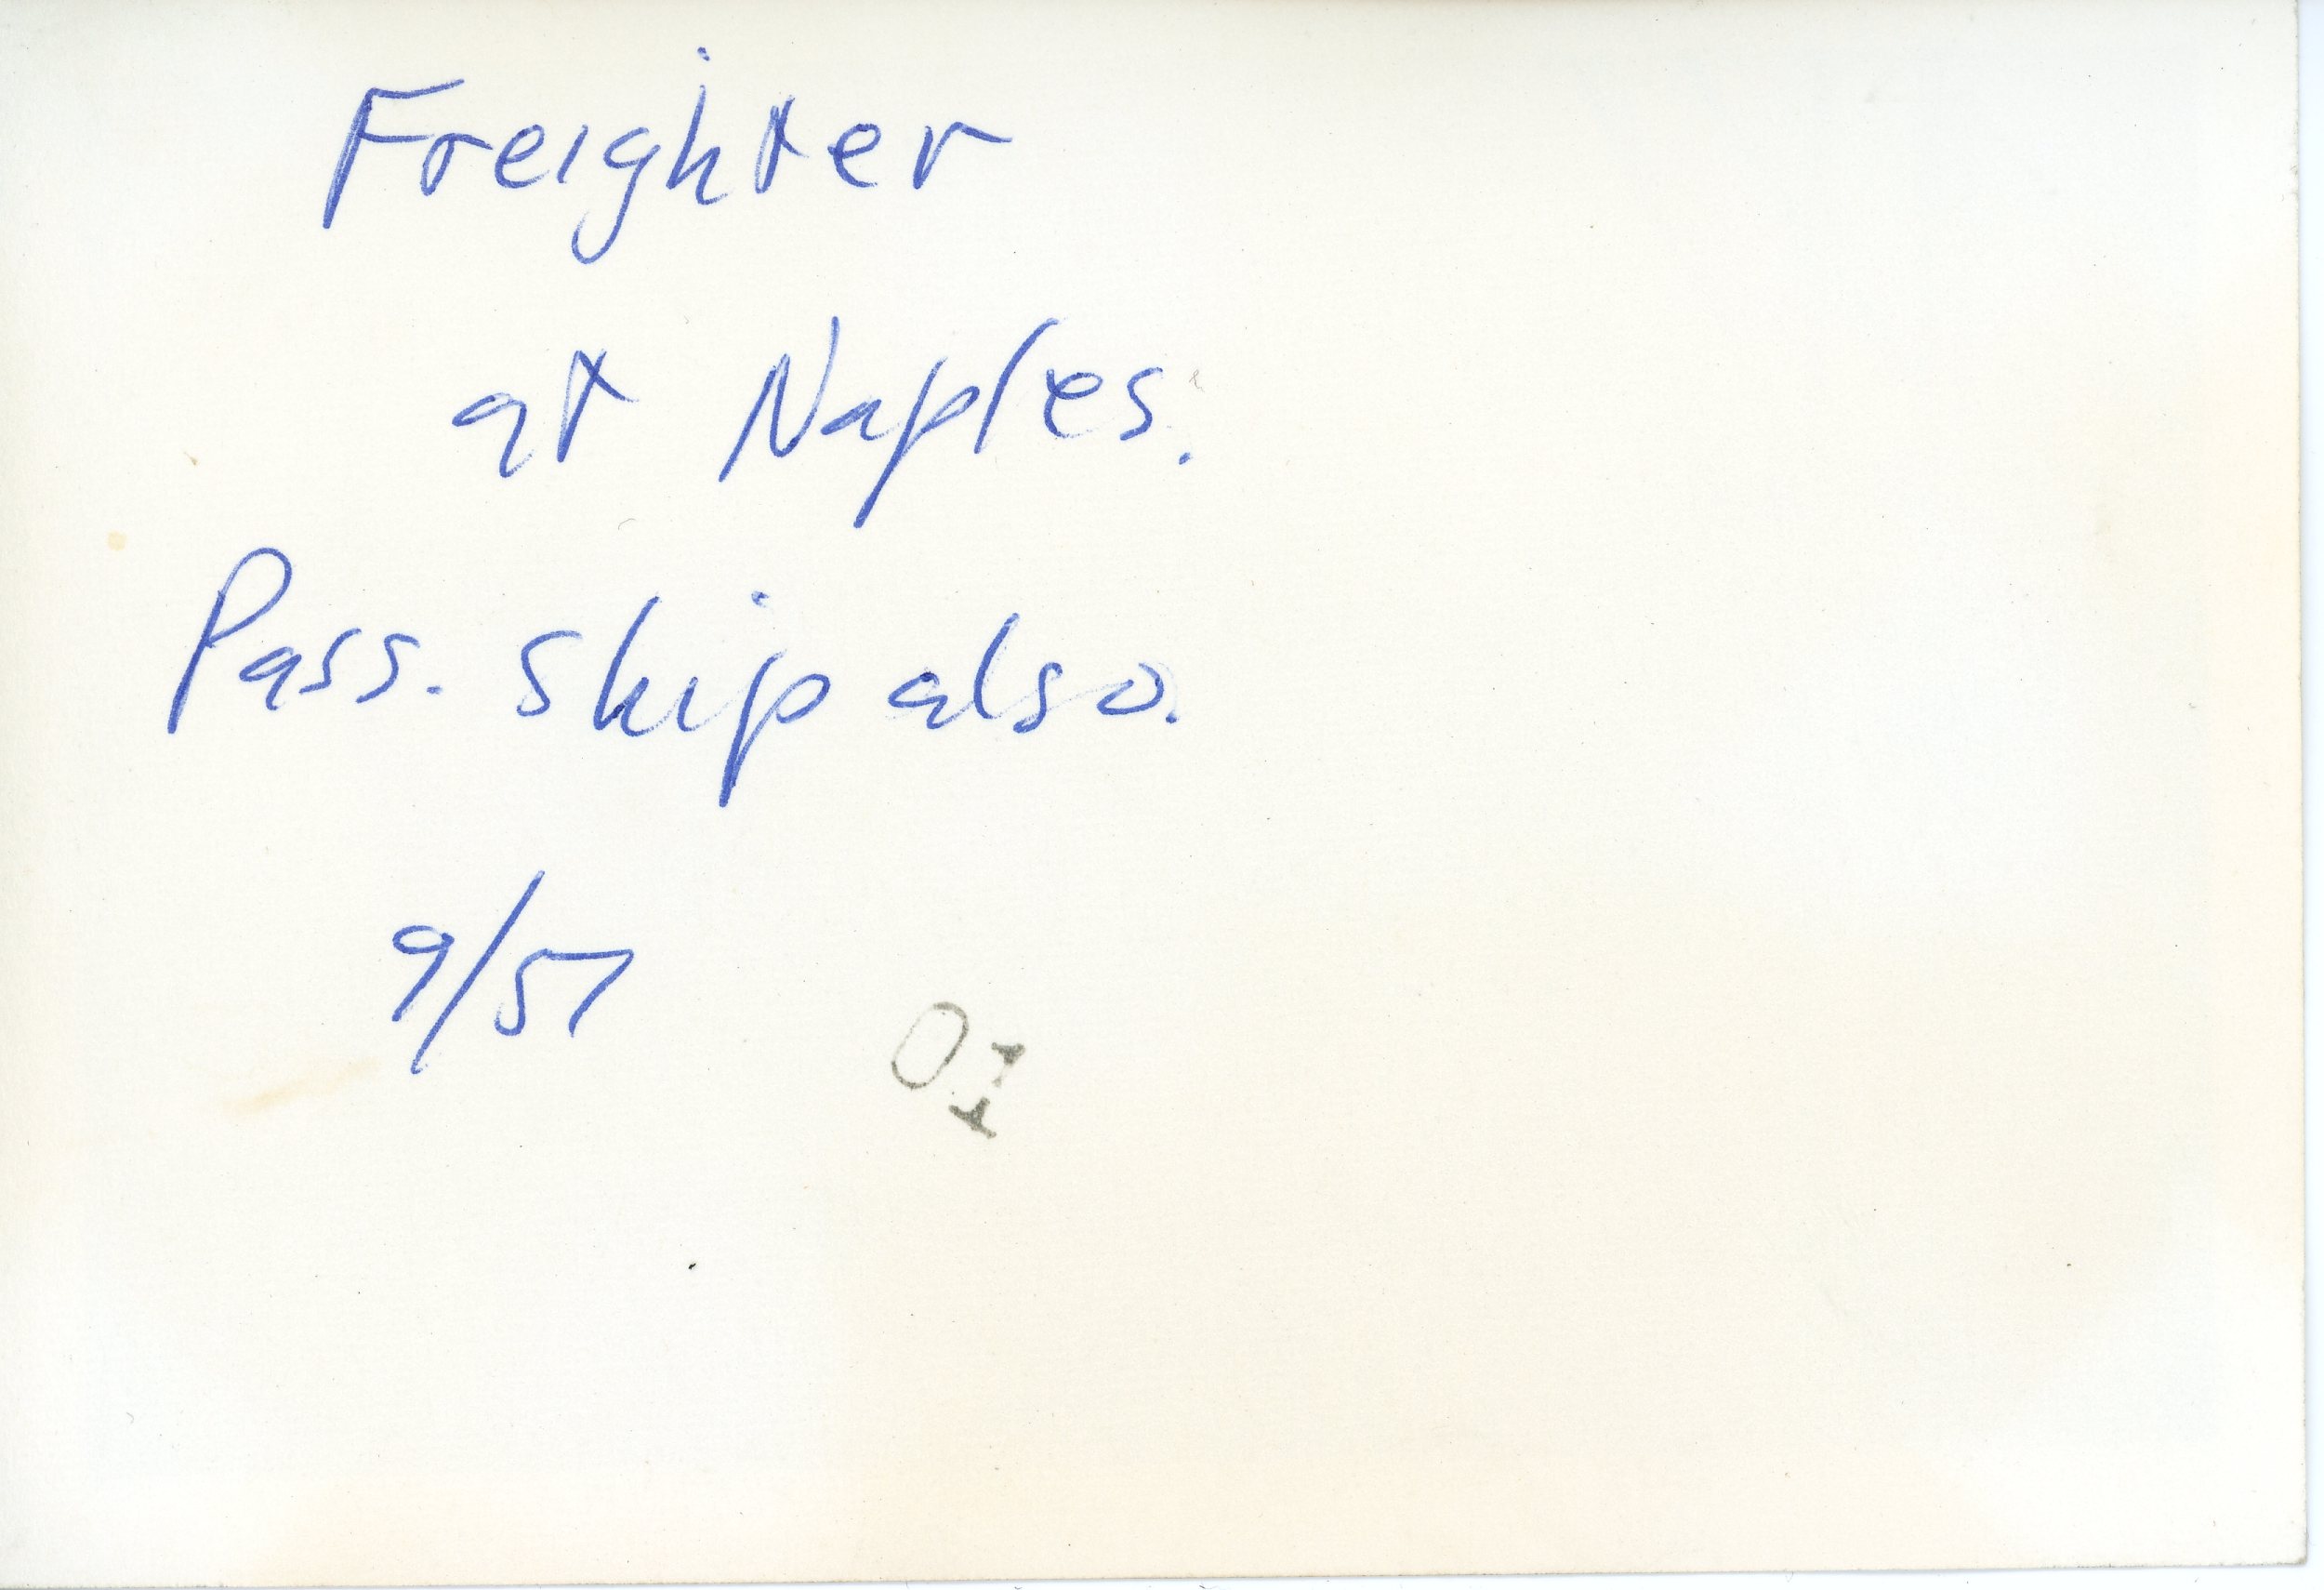 Freighter
at Naples.
Pass. ship also.
9/57
01